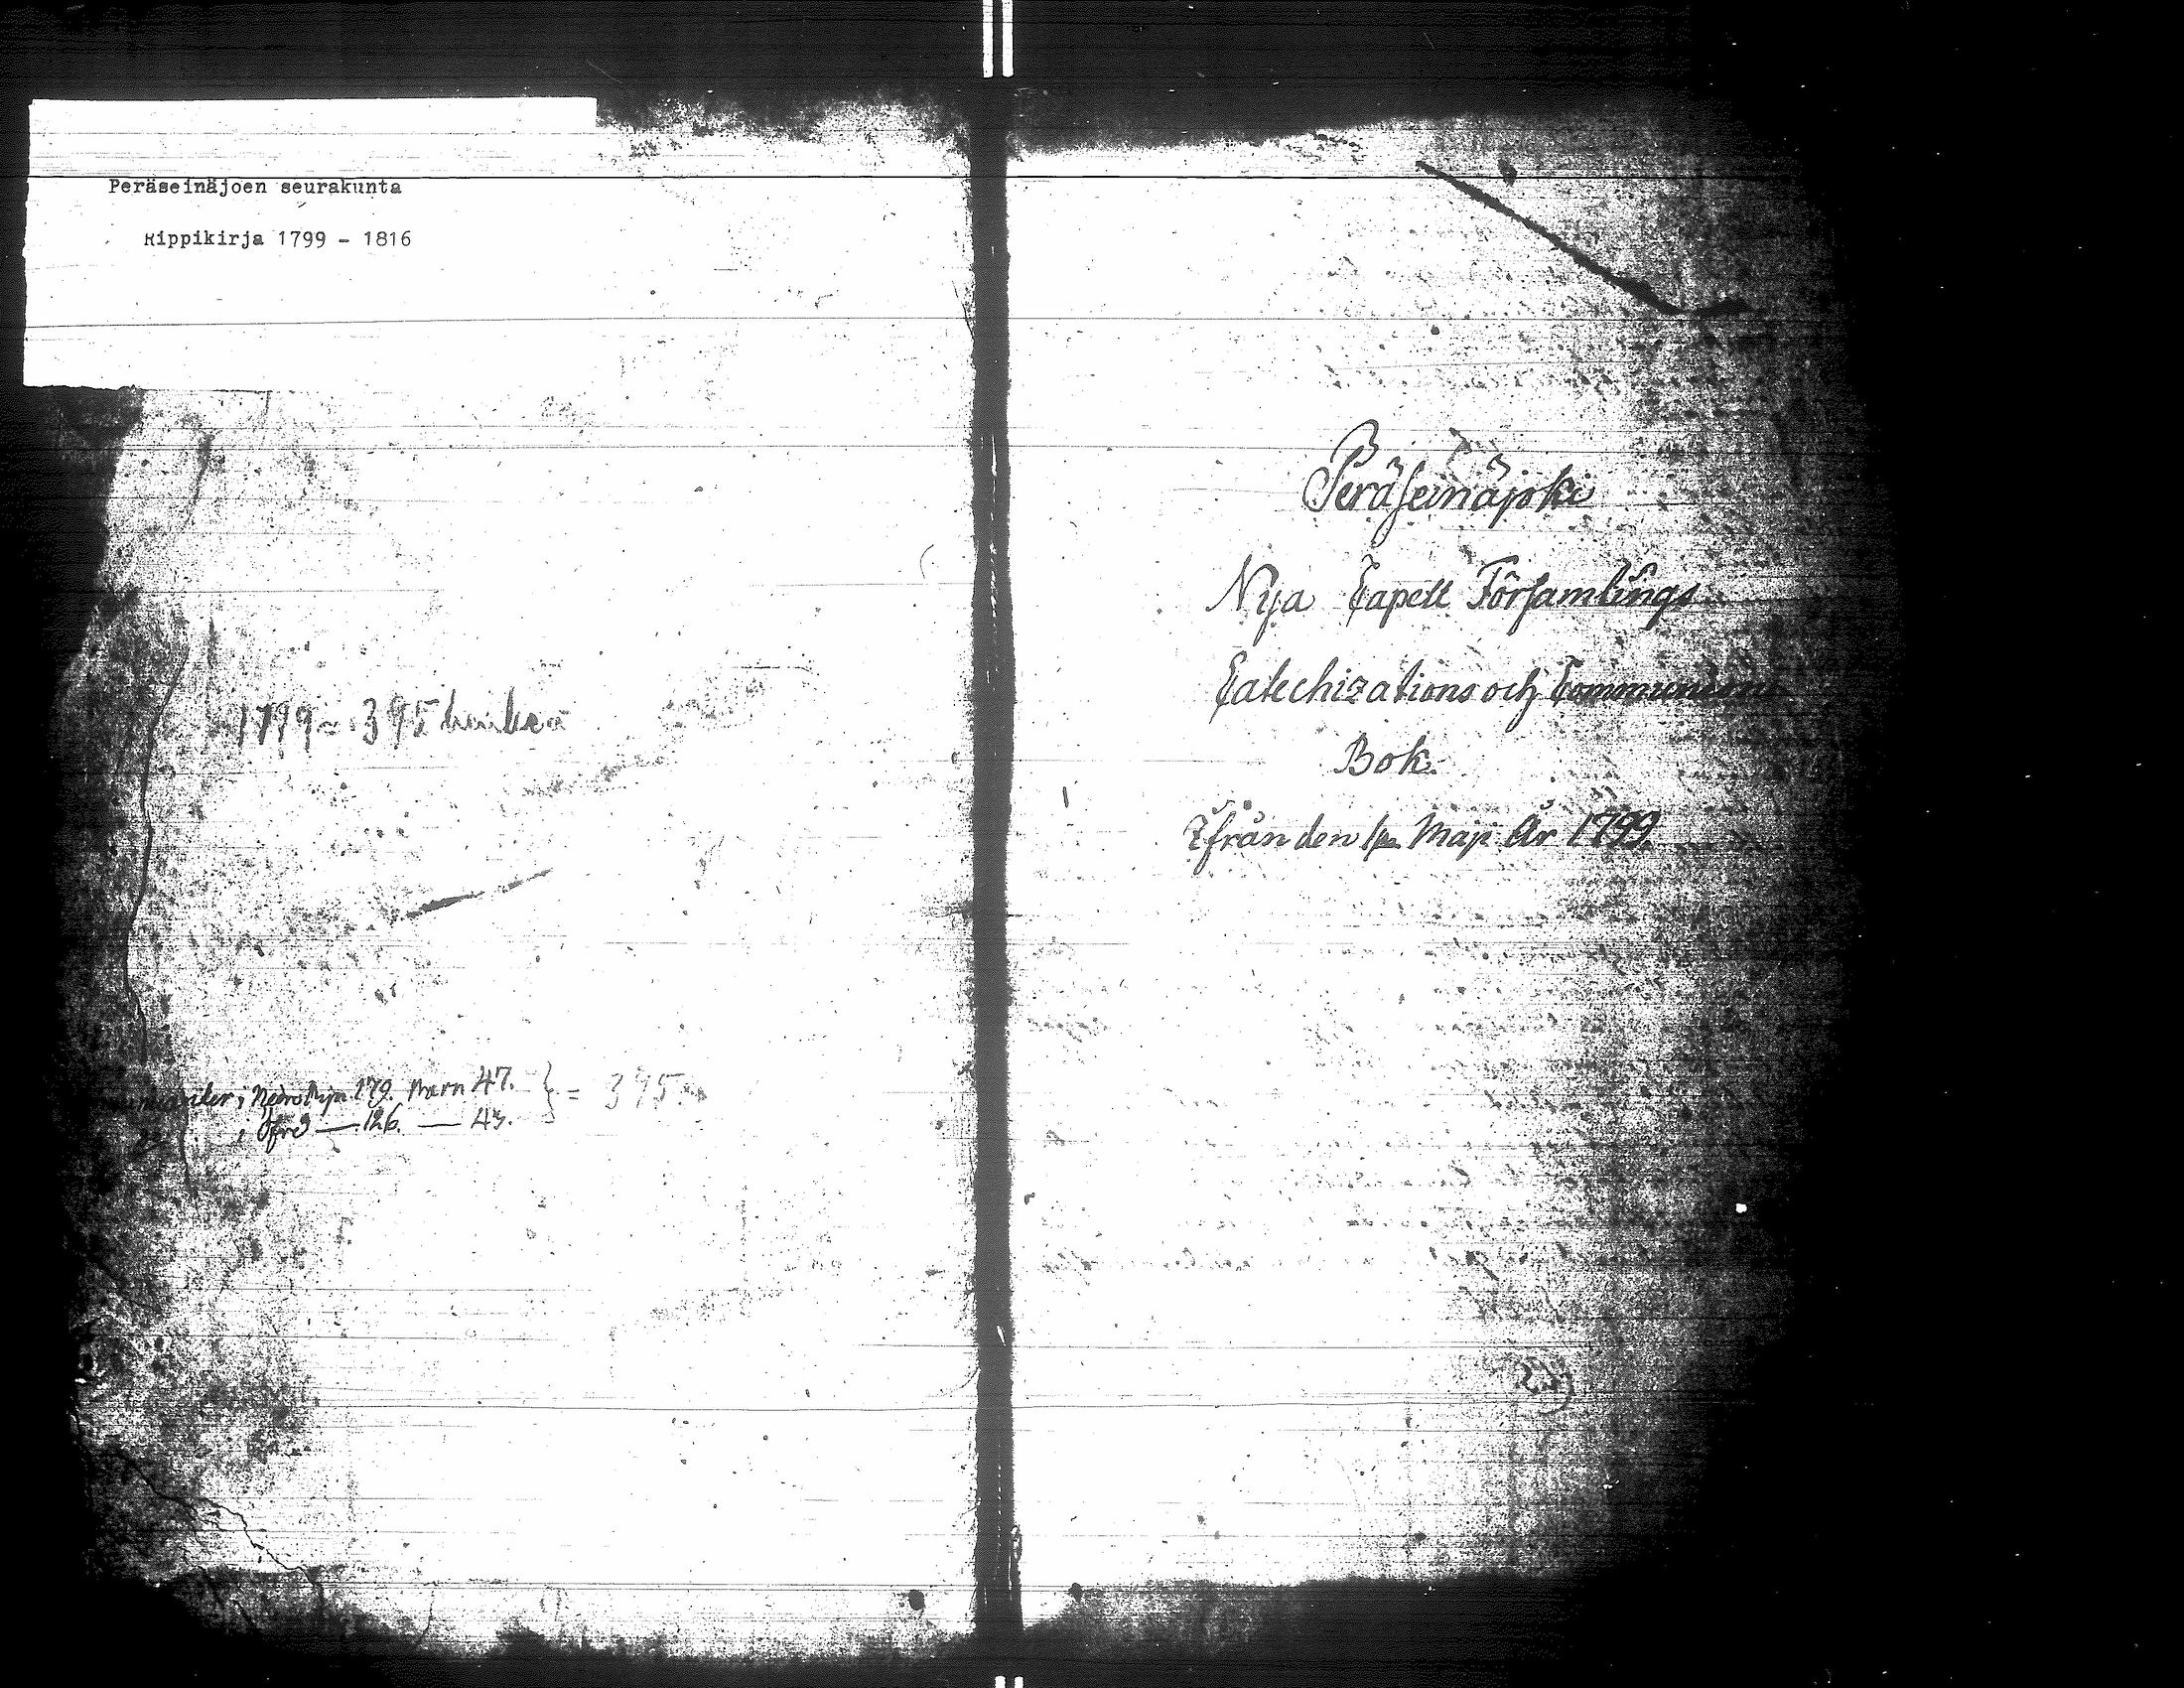 Peräseinäjoen seurakunta
Rippikirja 1799 - 1816
1799 = 395 henkeä
Nedra Byn 179. Barn 47. } = 395.
Öfre — 126. — 43.
Peräseinäjoki
Nya Capell Församlings
Catechizations och Communions
Bok.
Ifrån den 1sta Maji År 1799.